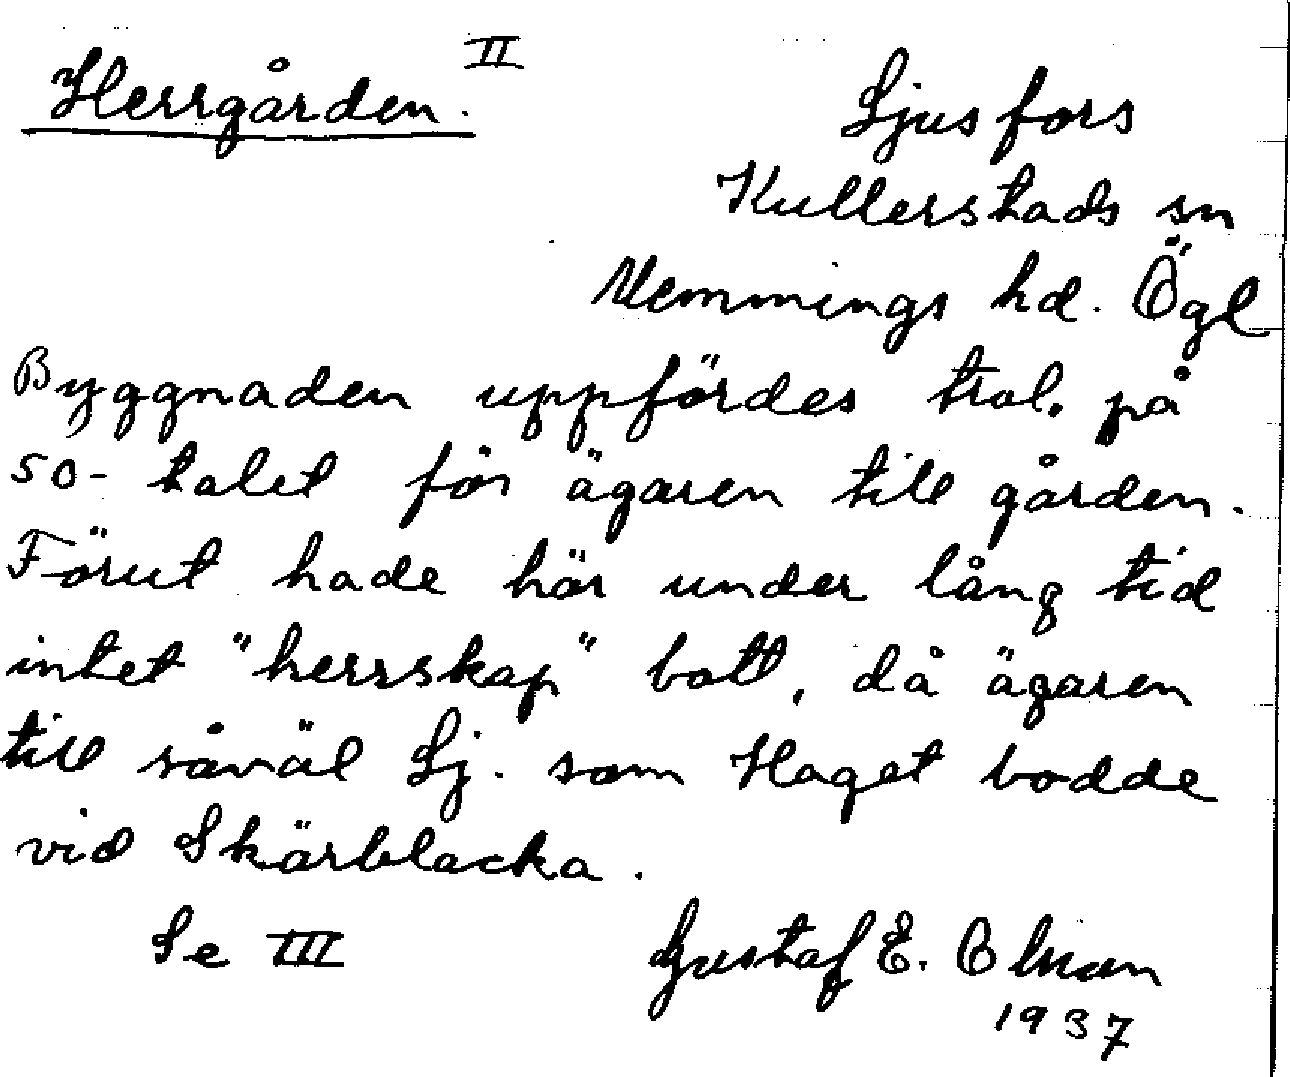 Herrgården. II
Ljusfors
Kullerstads sn
Memmings hd. Ögl
Byggnaden uppfördes trol. på
50-talet för ägaren till gården.
Förut hade här under lång tid
intet "herrskap" bott, då ägaren
till såväl Lj. som Haget bodde
vid Skärblacka.
Se III
Gustaf E.
1937